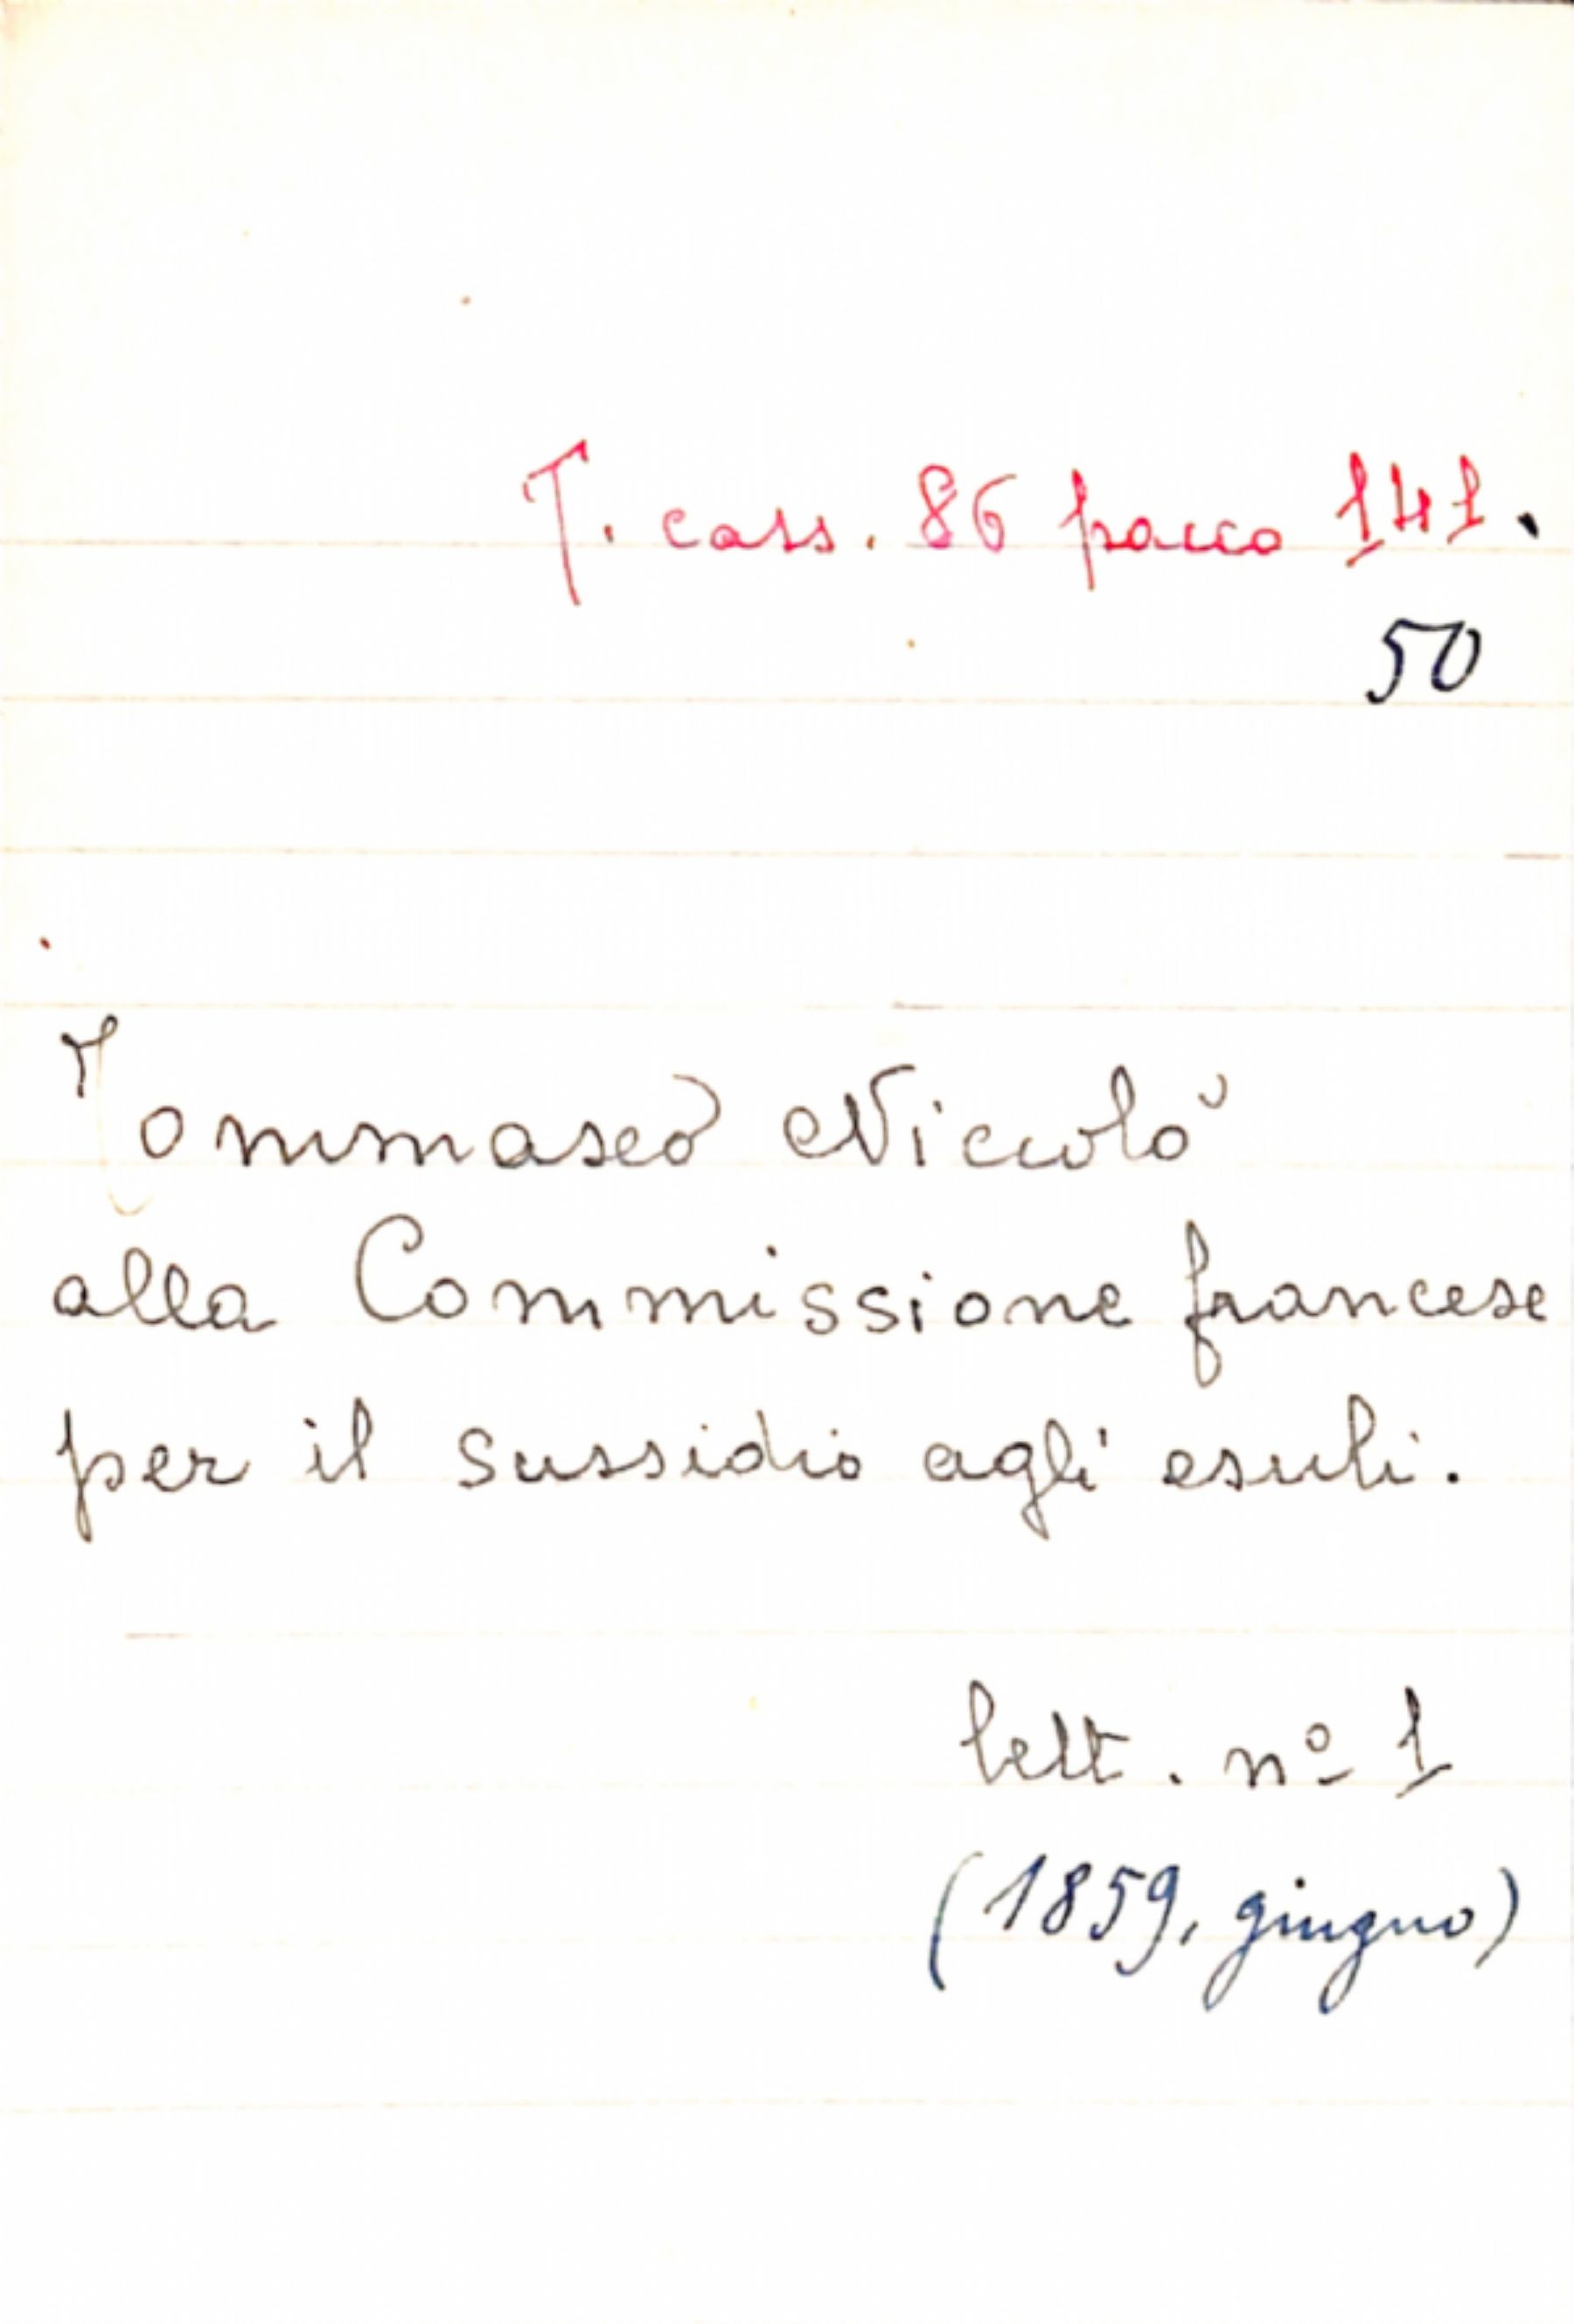 T. cass. 86 pacco 141.
50
Tommaseo Niccolò
alla Commissione francese
per il sussidio agli esuli.
lett. nº 1
(1859, giugno)